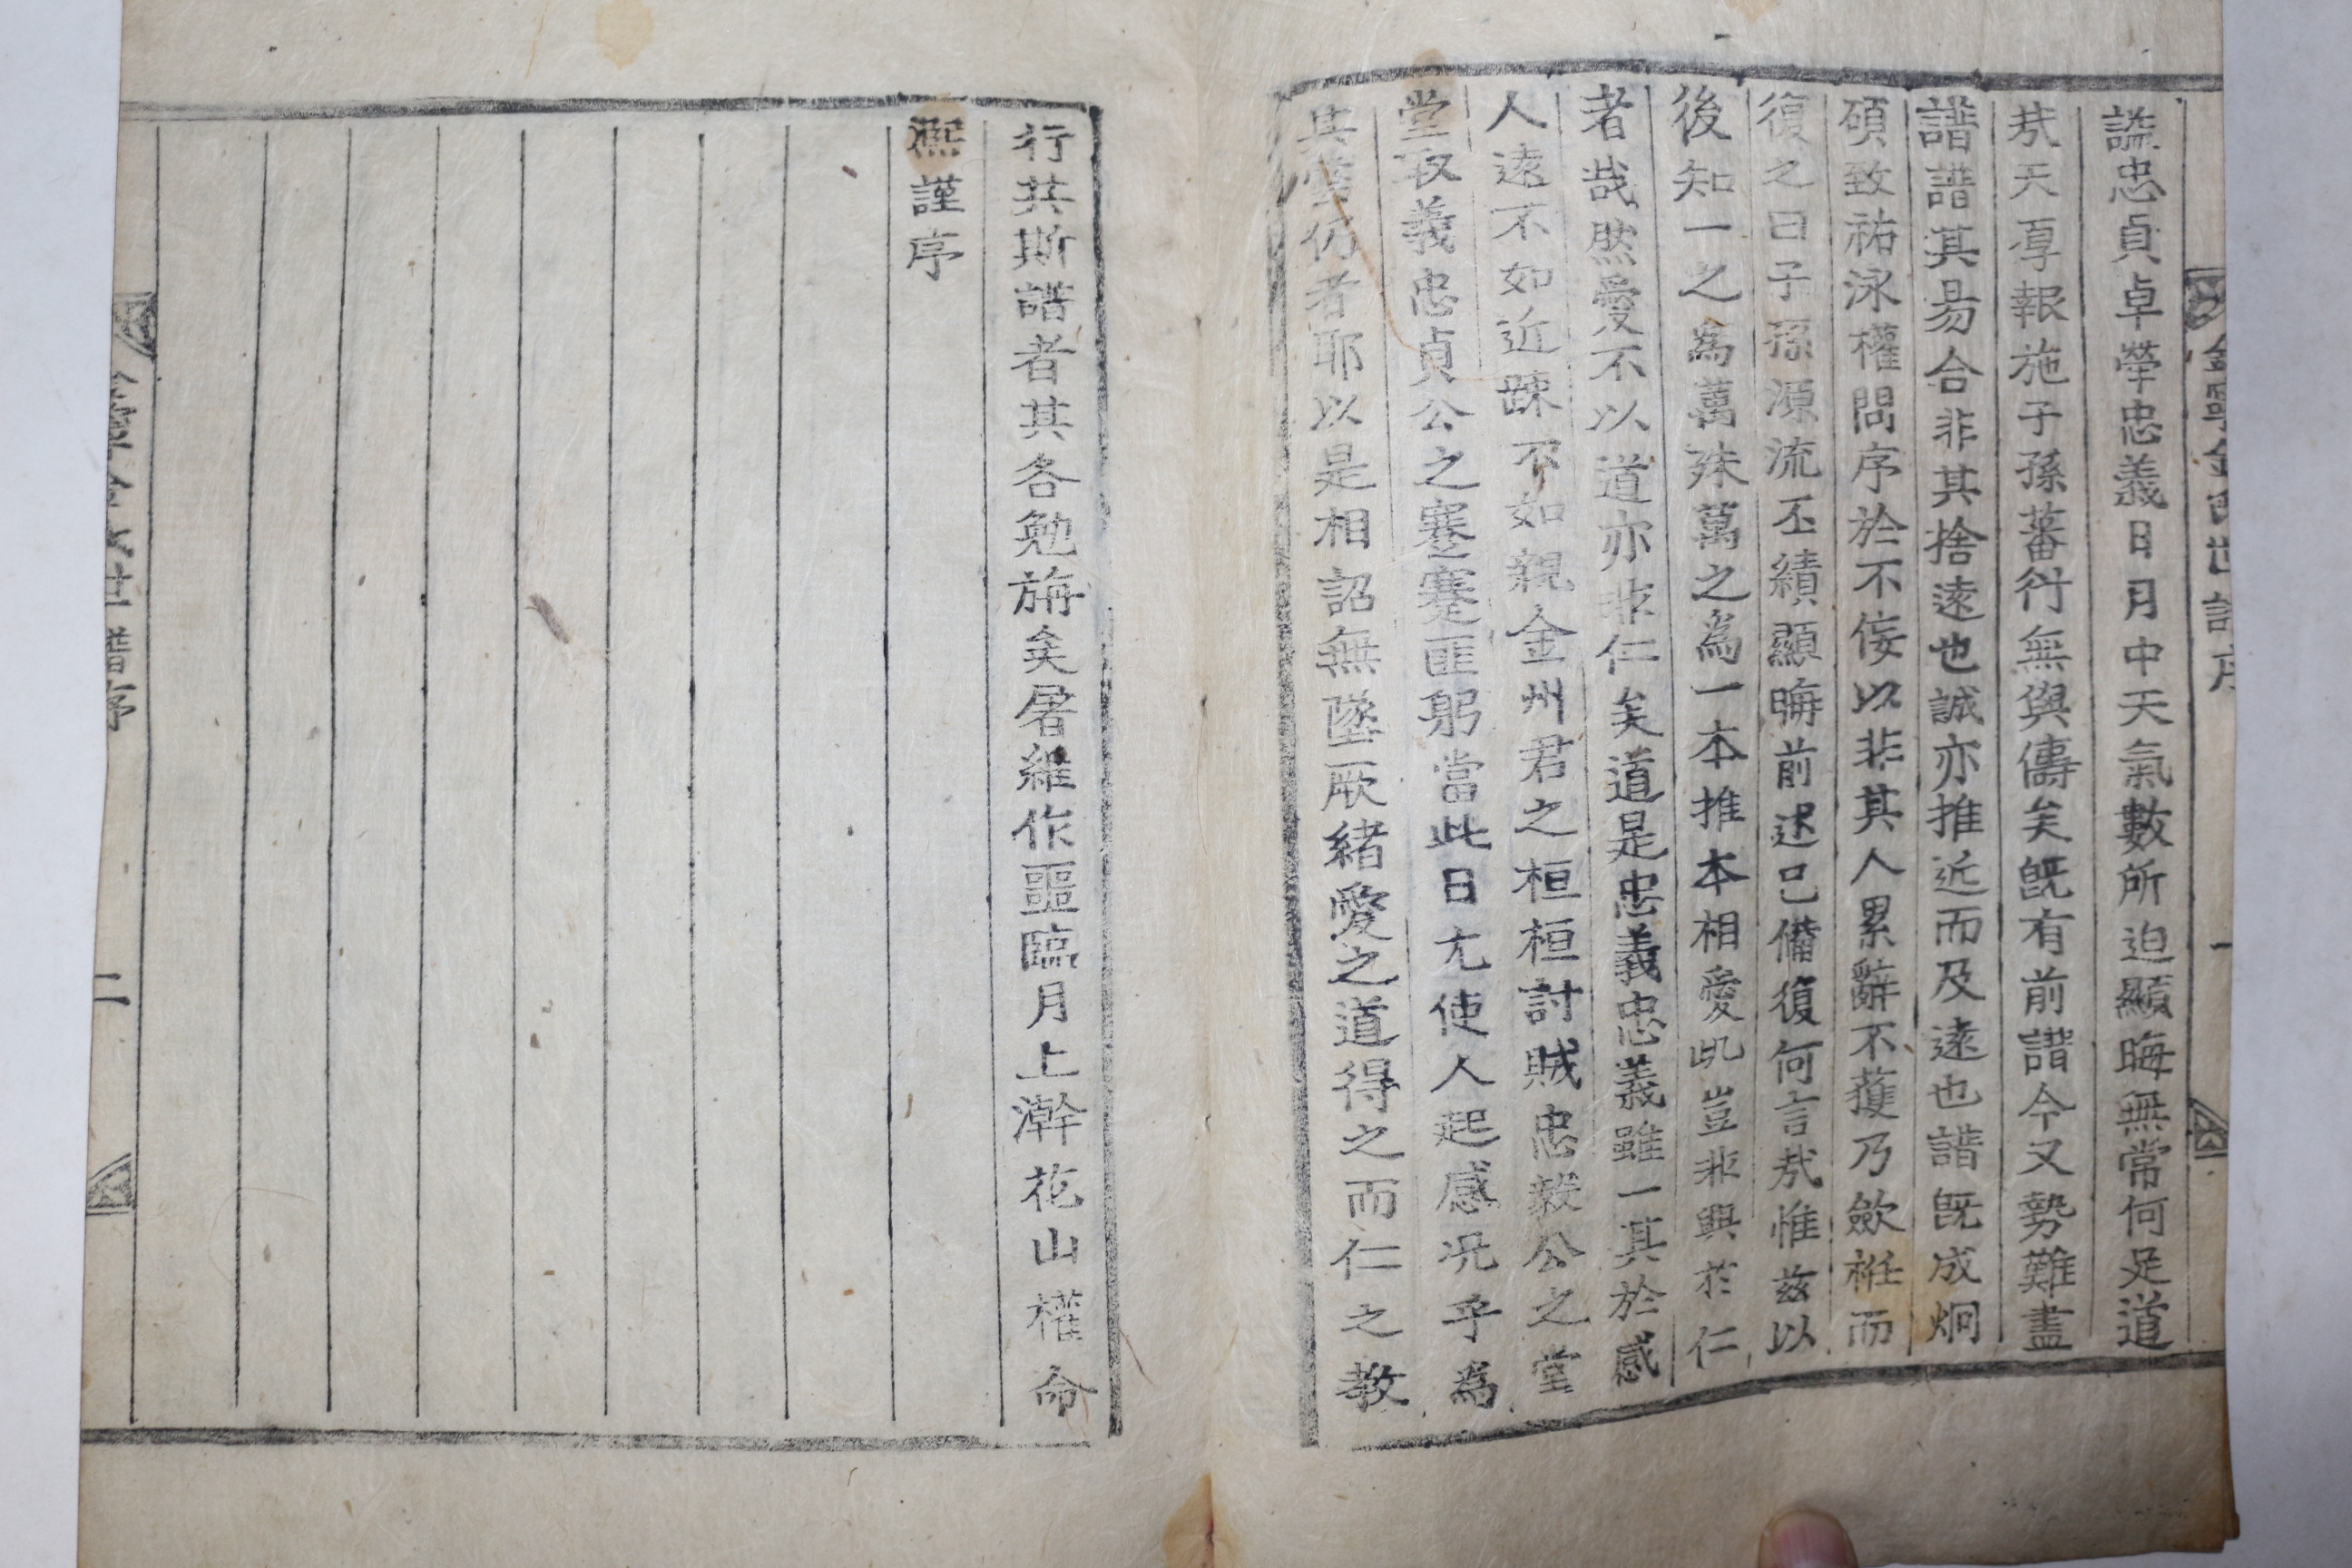 金寧金氏世譜序
一
諡忠貞卓犖忠義日月中天氣數所迫顯晦無常何足道
㦲天厚報施子孫蕃衍無與儔矣旣有前譜今又勢難盡
譜譜其昜合非其捨遠也誠亦推近而及遠也譜旣成炯
碩致祐泳權問序於不佞以非其人累辭不獲乃歛袵而
復之曰子孫源流丕績顯晦前述已備復何言㦲惟玆以
後知一之爲萬殊萬之爲一本推本相愛此豈非興於仁
者哉然愛不以道亦非仁矣道是忠義忠義雖一其於感
人遠不如近踈不如親金州君之桓桓討賊忠毅公之堂
堂取義忠貞公之蹇蹇匪躬當此日尤使人起感况乎爲
其雲仍者耶以是相詔無墜厥緖愛之道得之而仁之敎
行其斯譜者其各勉旃矣屠維作噩臨月上澣花山權命
熙謹序
金寧金氏世譜序
二